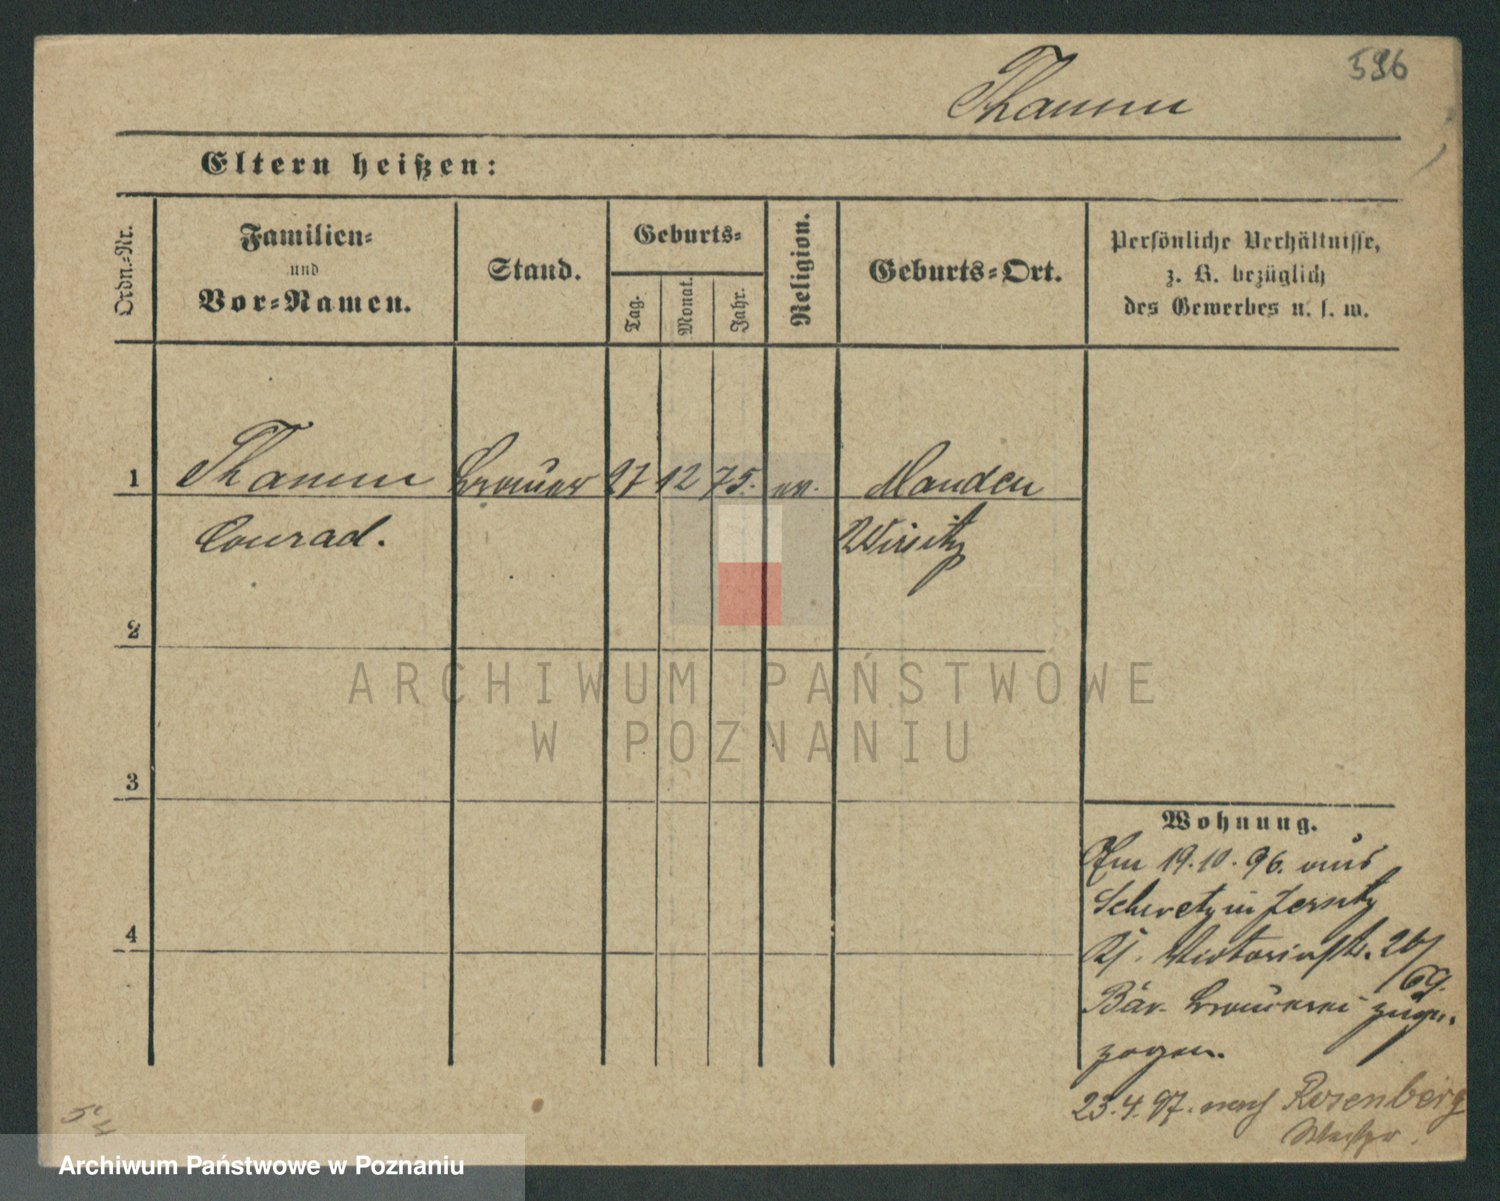 596
Thamm
Eltern heißen:
Ordn.-Nr.
Familien-
und
Vor-Namen.
Stand.
Geburts-
Tag.
Monat.
Jahr.
Religion.
Geburts-Ort.
Persönliche Verhältnisse,
z. B. bezüglich
des Gewerbes u. s. w.
1 Thamm Brauer 27 12 75. ev.
Conrad. Wirsitz
2
3
4
Wohnung.
Am 19.10.96. aus
Schwetz in Jersitz
Victoriastr. 26/
69.
Bär. Brauerei zuge-
zogen.
23.4.97. nach Rosenberg
ARCHIWUM PAŃSTWOWE
W POZNANIU
Archiwum Państwowe w Poznaniu